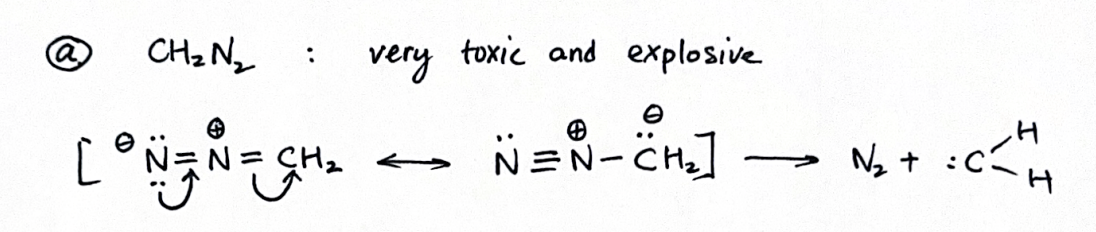 ⓐ CH₂N₂ : very toxic and explosive
[ ⊖ N̈=N⊕=CH₂ ⟷ N̈≡N⊕–C̈⊖H₂ ] ⟶ N₂ + :C<H H